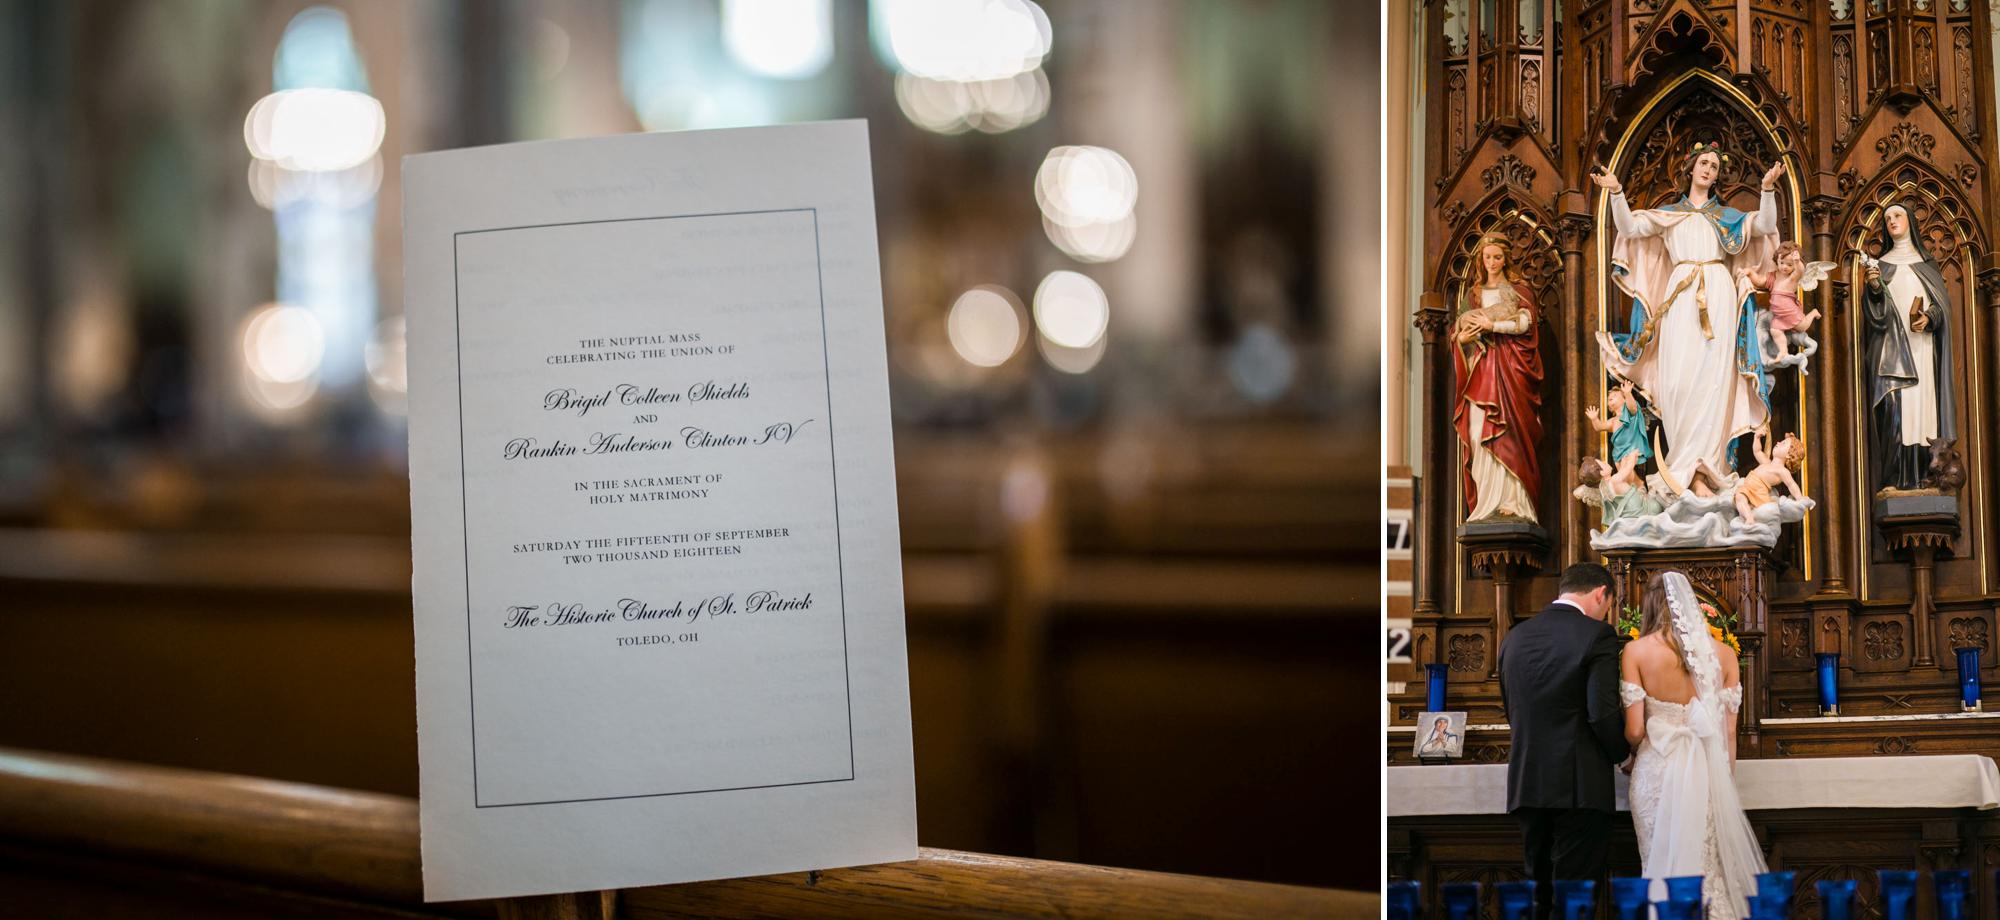 THE NUPTIAL MASS
CELEBRATING THE UNION OF
Brigid Colleen Shields
AND
Rankin Anderson Clinton IV
IN THE SACRAMENT OF
HOLY MATRIMONY
SATURDAY THE FIFTEENTH OF SEPTEMBER
TWO THOUSAND EIGHTEEN
The Historic Church of St. Patrick
TOLEDO, OH
7
2